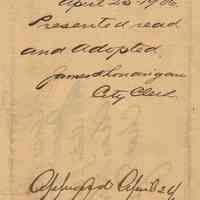 April 23 1906.
Presented read
and adopted.
James Lonanigan
City Clerk
Approved April 24